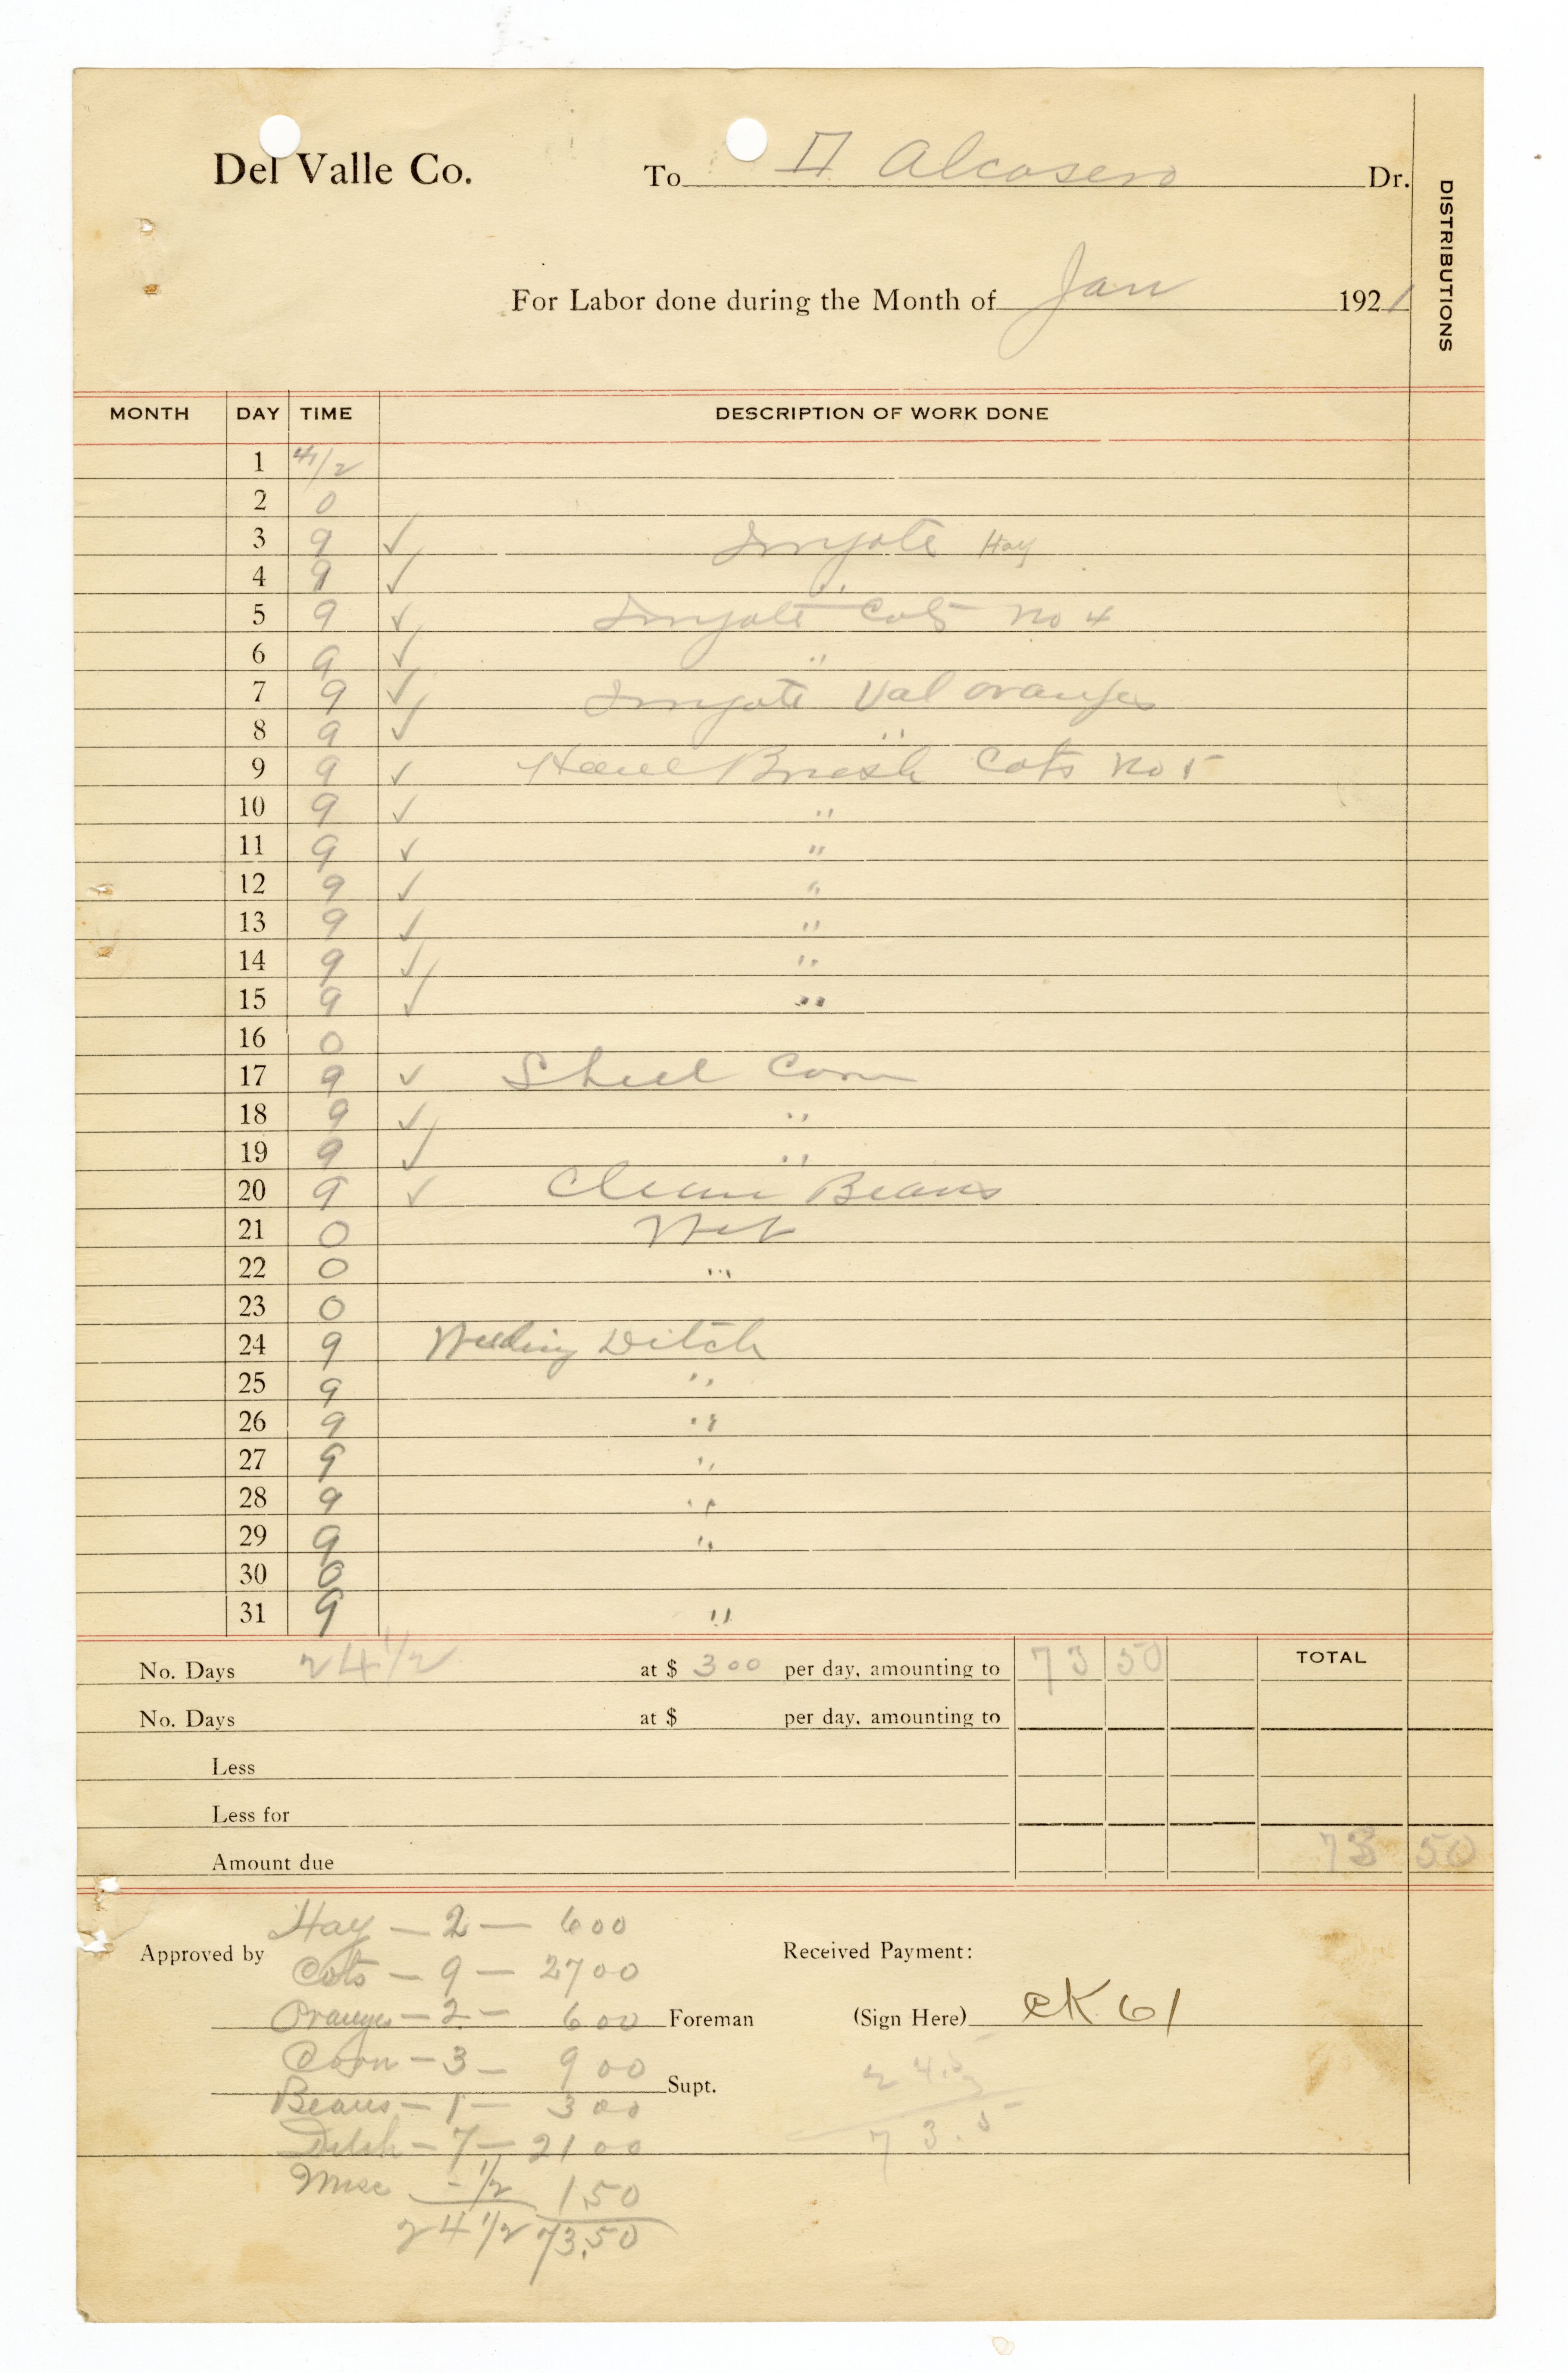 Del Valle Co. To Alcosero Dr.
DISTRIBUTIONS
For Labor done during the Month of Jan 1921
MONTH DAY TIME DESCRIPTION OF WORK DONE
1 4 1/2
2 0
3 9 ✓ Irrigate Hay
4 9 ✓ "
5 9 ✓ Irrigate Cots No 4
6 9 ✓ "
7 9 ✓ Irrigate Val oranges
8 9 ✓ "
9 9 ✓ Haul Brush Cots No 5
10 9 ✓ "
11 9 ✓ "
12 9 ✓ "
13 9 ✓ "
14 9 ✓ "
15 9 ✓ "
16 0
17 9 ✓ Shell Corn
18 9 ✓ "
19 9 ✓ "
20 9 ✓ Clean Beans
21 0 Wet
22 0 "
23 0
24 9 Weeding Ditch
25 9 "
26 9 "
27 9 "
28 9 "
29 9 "
30 0
31 9 "
No. Days 24 1/2 at $ 3 00 per day, amounting to 73 50 TOTAL
No. Days at $ per day, amounting to
Less
Less for
Amount due 73 50
Hay — 2 — 6 00
Approved by Received Payment:
Cots — 9 — 27 00
Oranges — 2 — 6 00 Foreman (Sign Here) CK 61
Corn — 3 — 9 00
24.5
Supt.
Beans — 1 — 3 00
73.5
Ditch — 7 — 21 00
Misc — 1/2 1.50
24 1/2 73.50